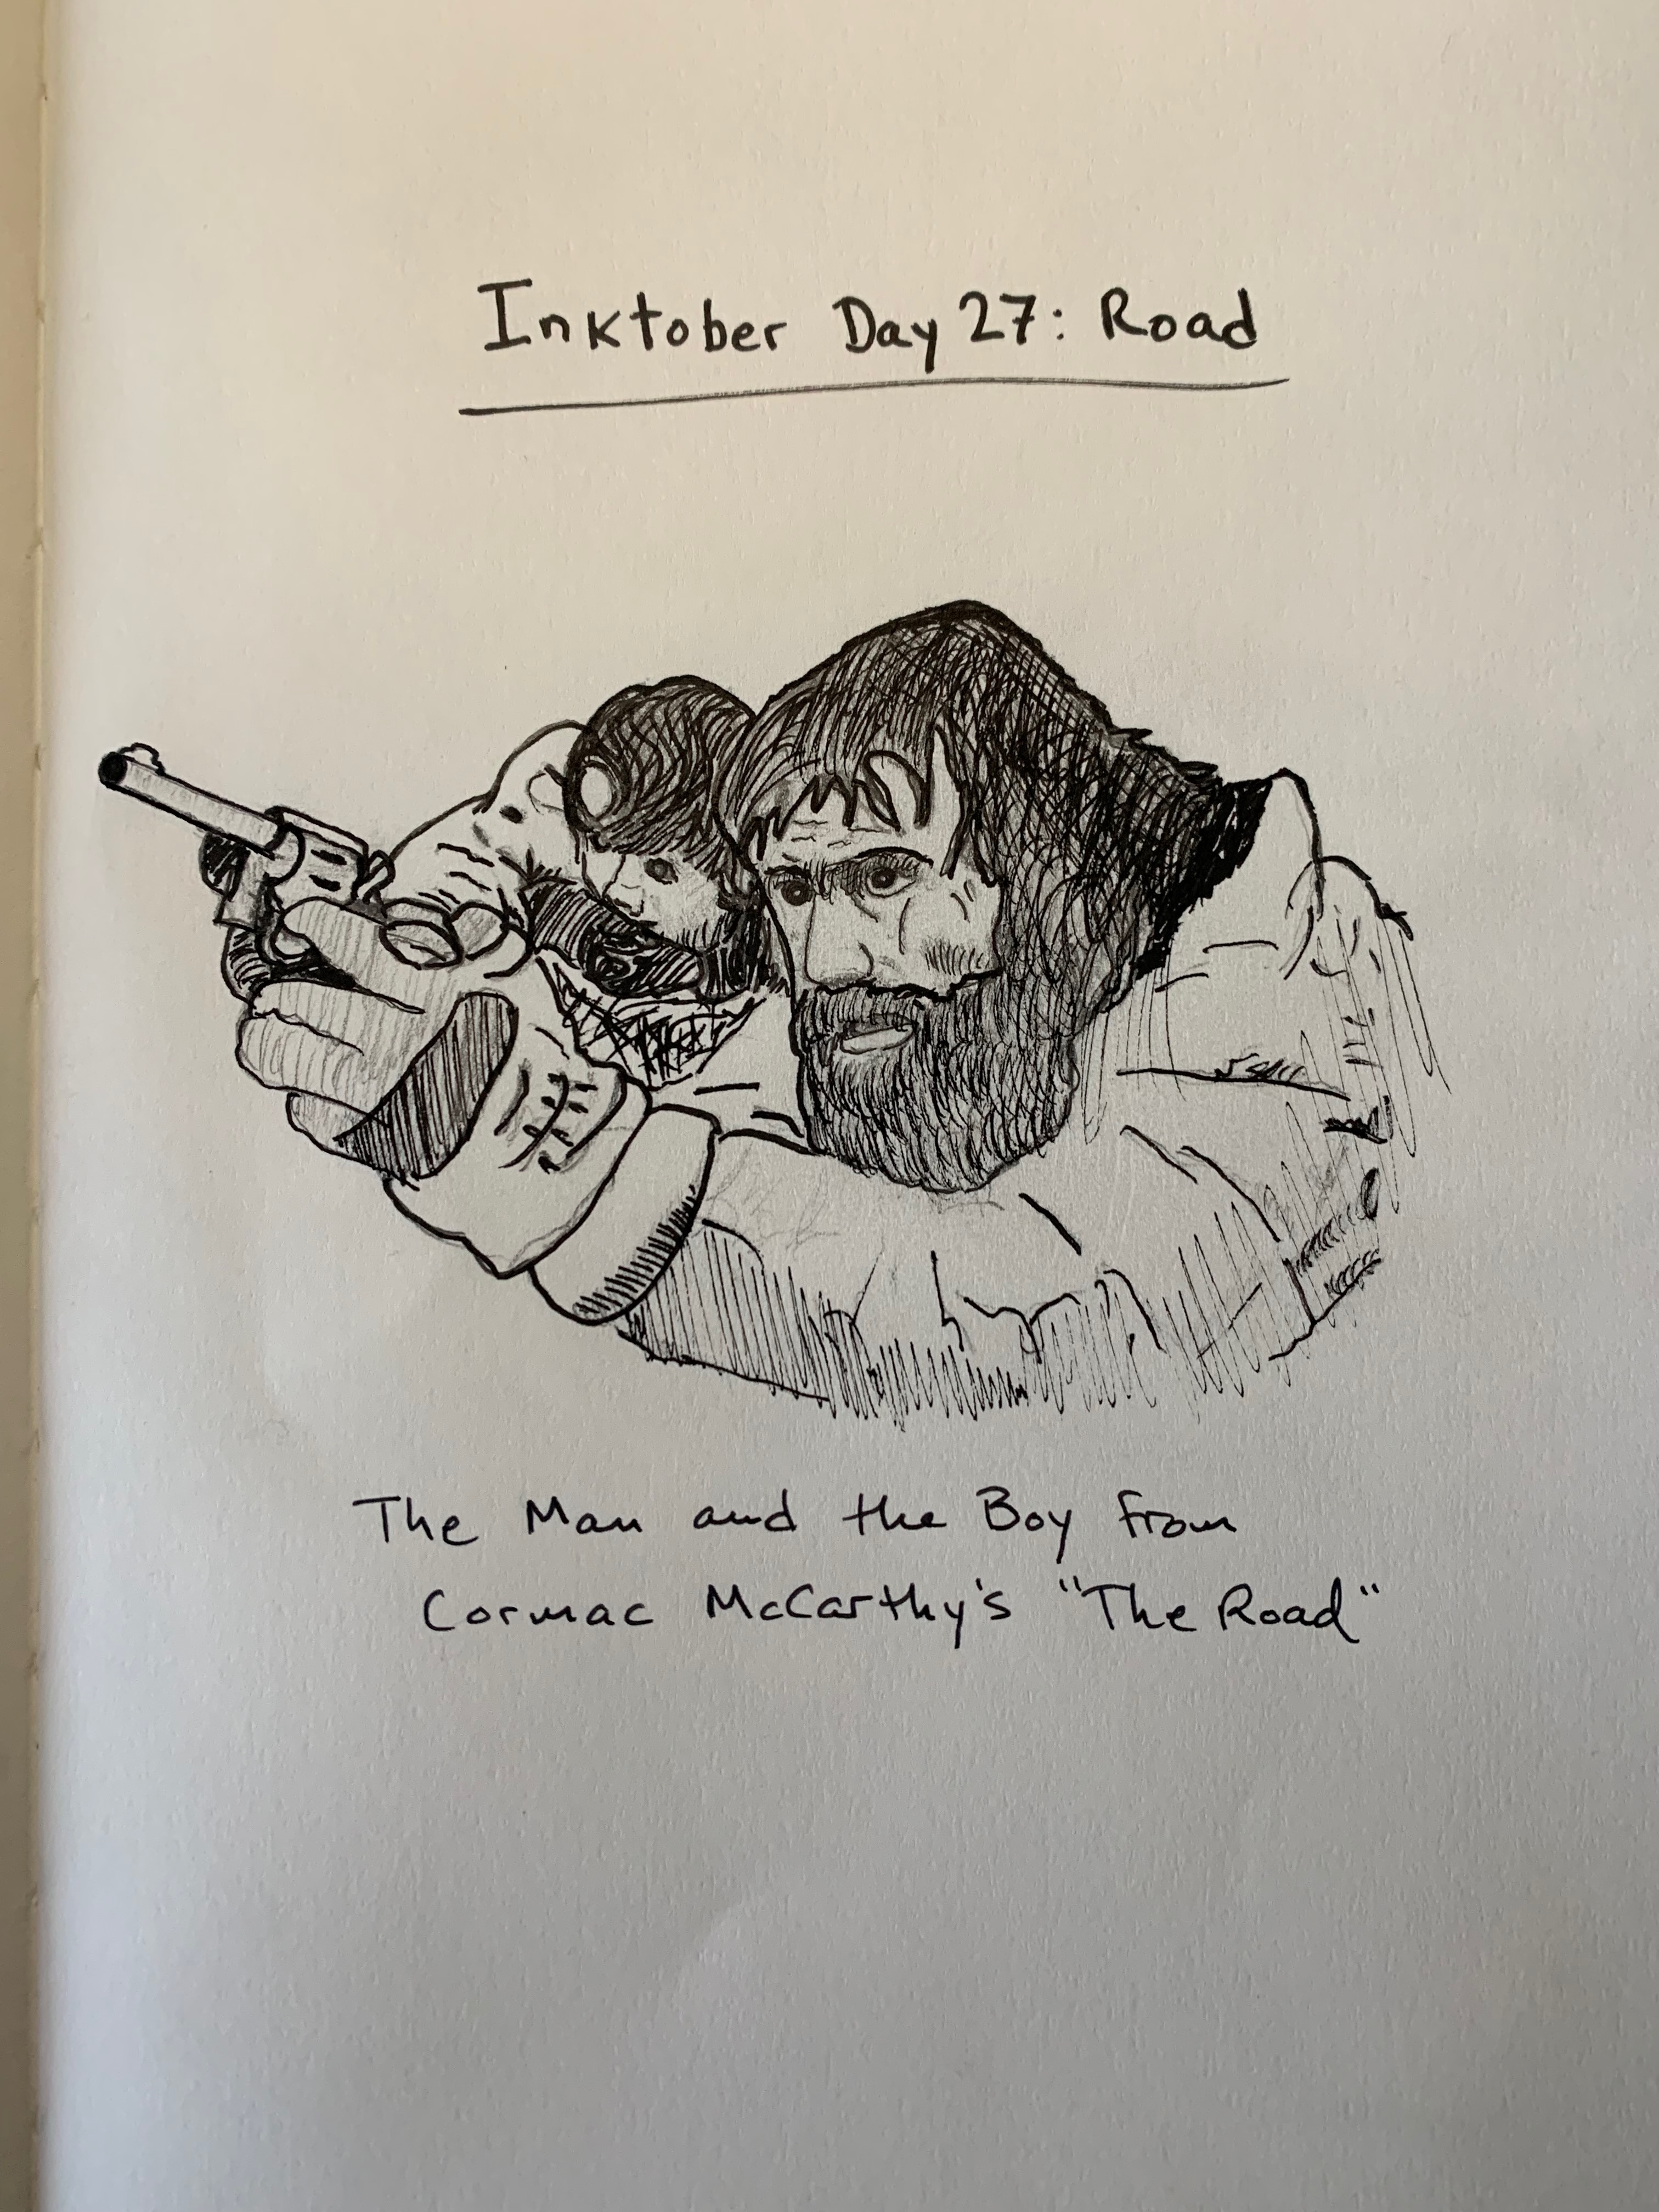 Inktober Day 27: Road
The Man and the Boy from
Cormac McCarthy's "The Road"